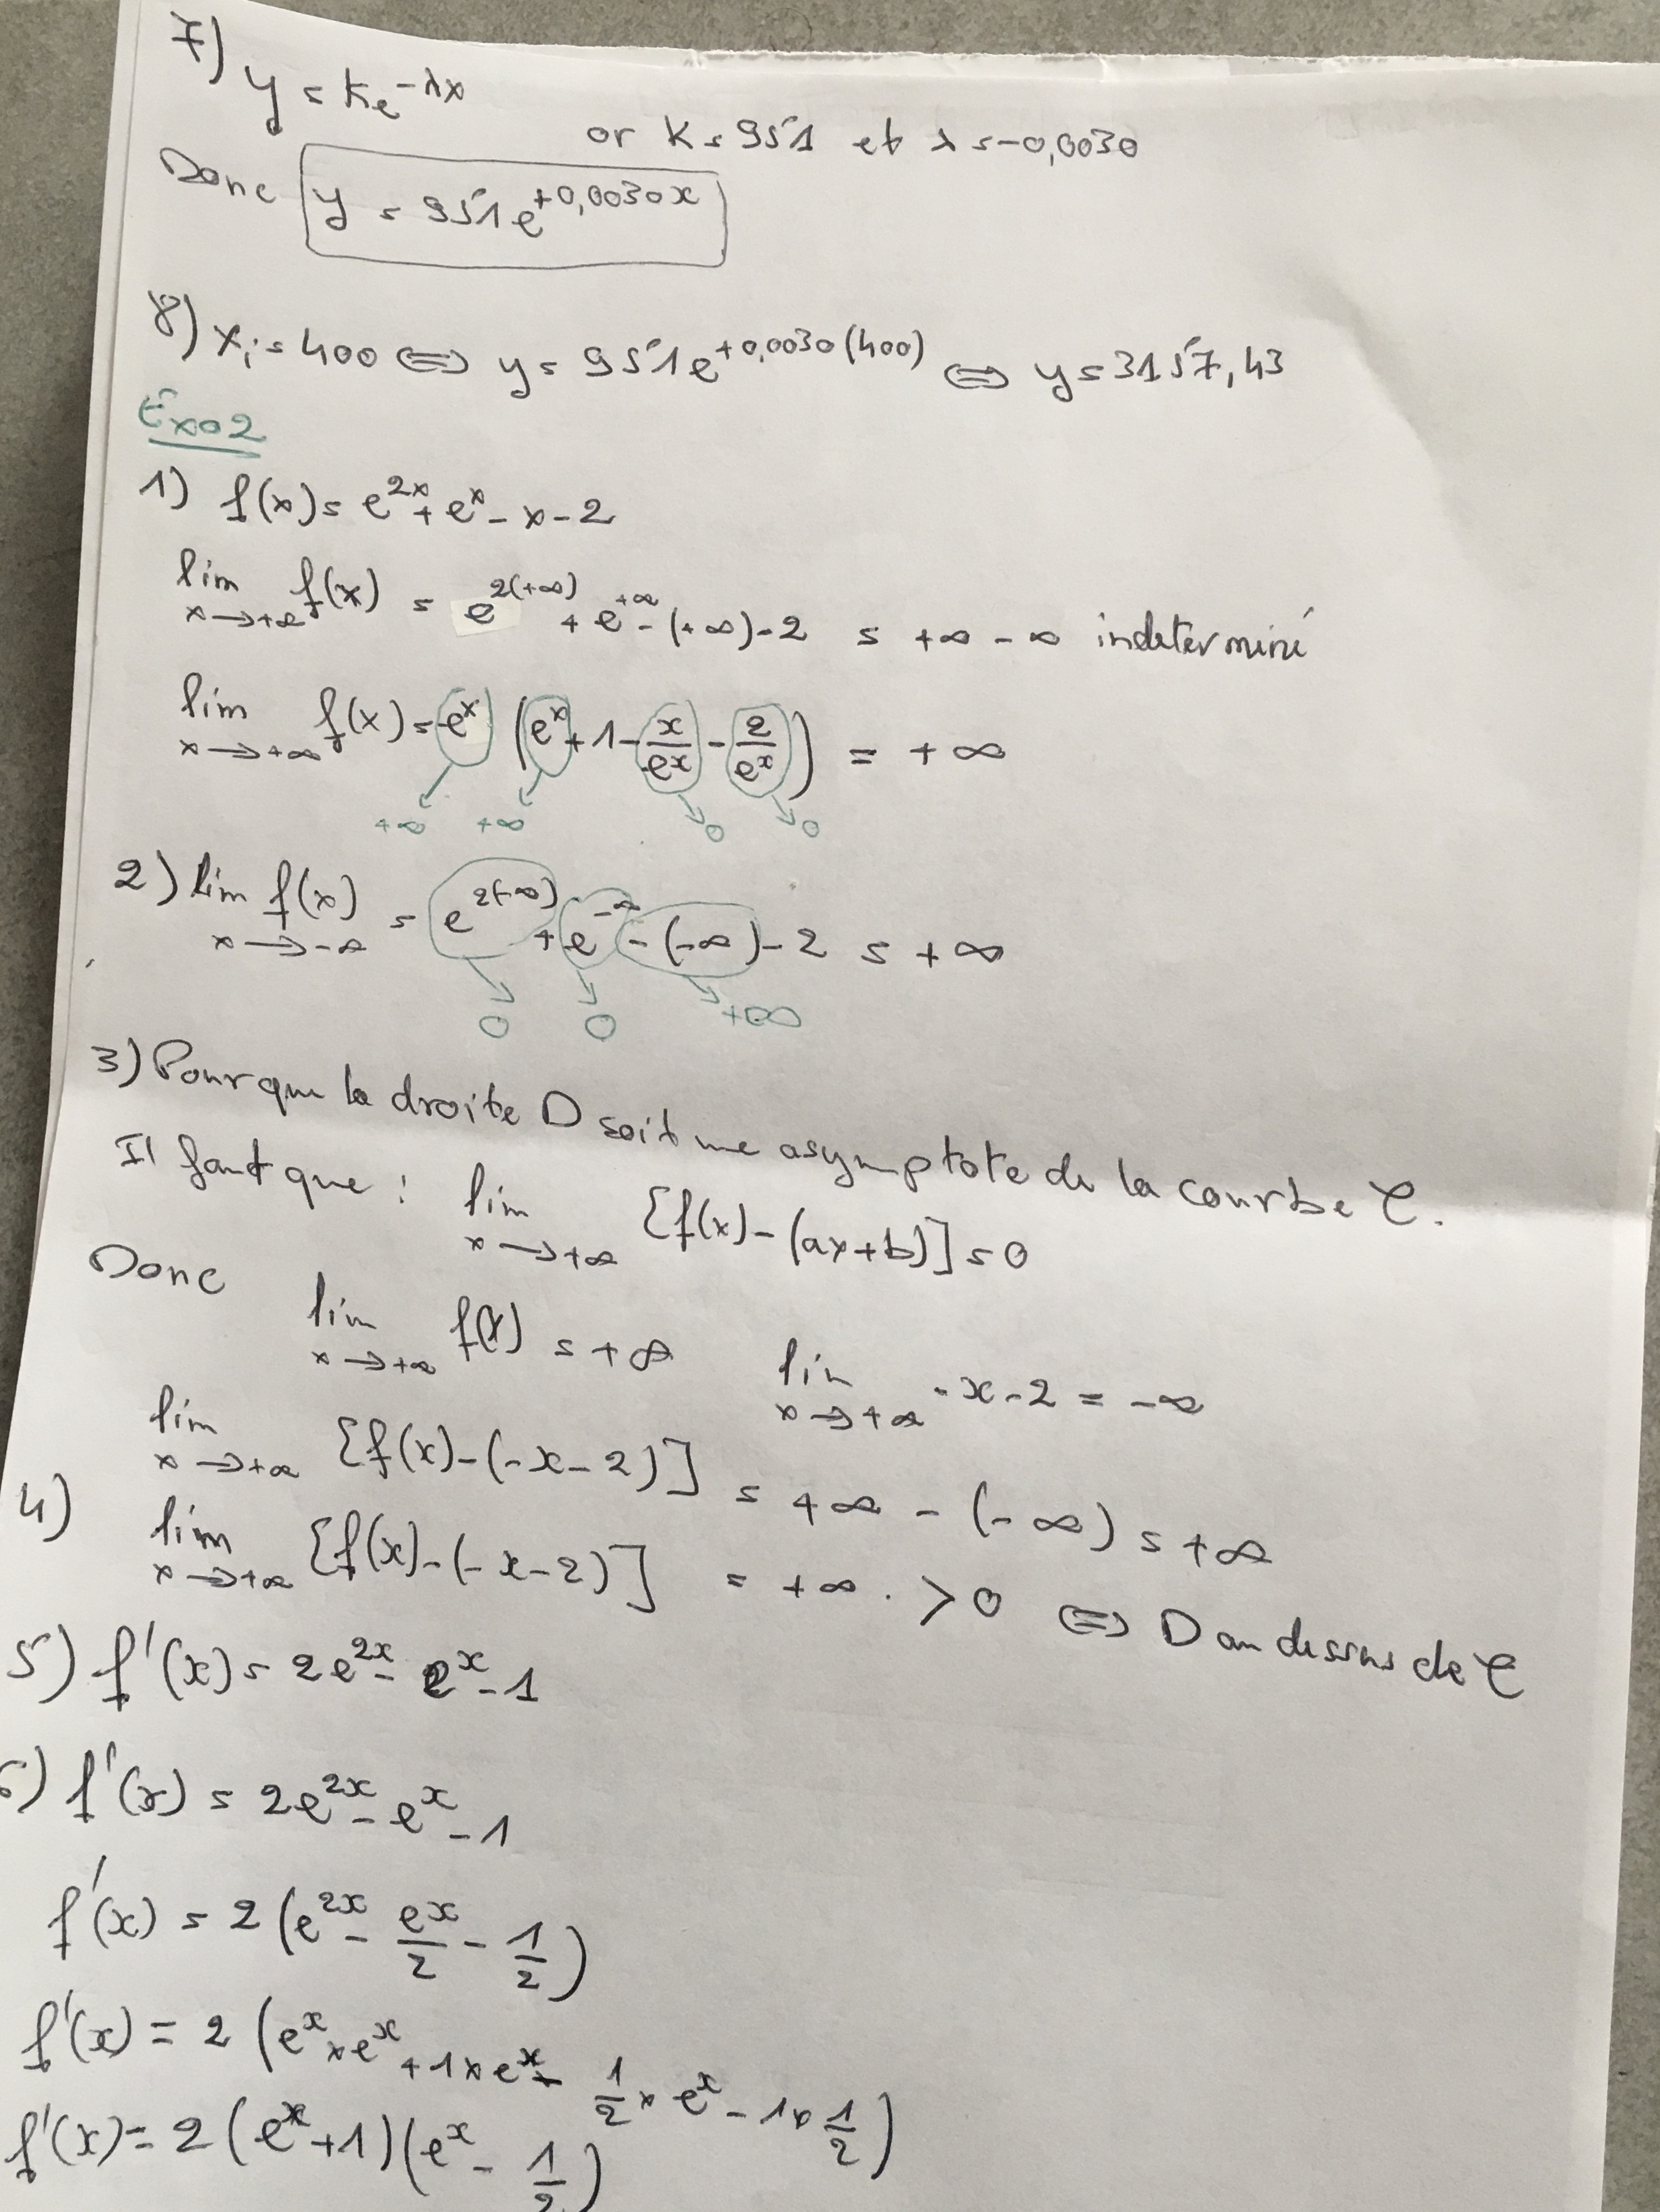 7) y = ke^{-λx}
or k = 951 et λ = -0,0030
Donc y = 951e^{+0,0030x}
8) x_i = 400 ⇔ y = 951e^{+0,0030(400)} ⇔ y = 3157,43
Exo2
1) f(x) = e^{2x} + e^x - x - 2
lim x→+∞ f(x) = e^{2(+∞)} + e^{+∞} - (+∞) - 2 = +∞ - ∞ indéterminé
lim x→+∞ f(x) = e^x (e^x + 1 - x/e^x - 2/e^x) = +∞
+∞ +∞ 0 0
2) lim x→-∞ f(x) = e^{2(-∞)} + e^{-∞} - (-∞) - 2 = +∞
0 0 +∞
3) Pour que la droite D soit une asymptote de la courbe C.
Il faut que : lim x→+∞ [f(x) - (ax+b)] = 0
Donc lim x→+∞ f(x) = +∞ lim x→+∞ -x-2 = -∞
lim x→+∞ [f(x) - (-x-2)] = +∞ - (-∞) = +∞
4) lim x→+∞ [f(x) - (-x-2)] = +∞ . > 0 ⇔ D au dessus de C
5) f'(x) = 2e^{2x} - e^x - 1
6) f'(x) = 2e^{2x} - e^x - 1
f'(x) = 2 (e^{2x} - e^x/2 - 1/2)
f'(x) = 2 (e^x × e^x + 1 × e^x - 1/2 × e^x - 1 × 1/2)
f'(x) = 2 (e^x + 1)(e^x - 1/2)